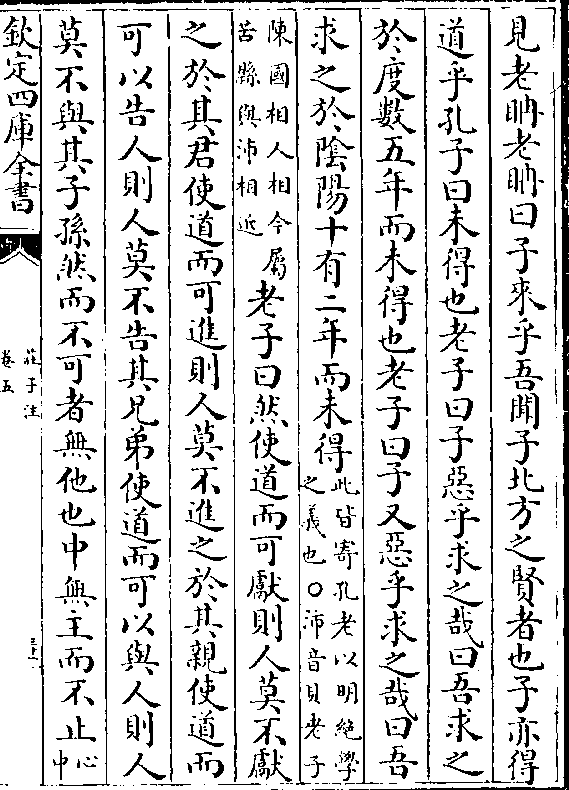 見老聃老聃曰子來乎吾聞子北方之賢者也子亦得
道乎孔子曰未得也老子曰子惡乎求之哉曰吾求之
於度數五年而未得也老子曰子又惡乎求之哉曰吾
求之於陰陽十有二年而未得此皆寄孔老以明絶學
之義也○沛音貝老子
陳國相人相今屬
苦縣與沛相近
老子曰然使道而可獻則人莫不獻
之於其君使道而可進則人莫不進之於其親使道而
可以告人則人莫不告其兄弟使道而可以與人則人
莫不與其子孫然而不可者無他也中無主而不止心
中
欽定四庫全書
莊子注
卷五